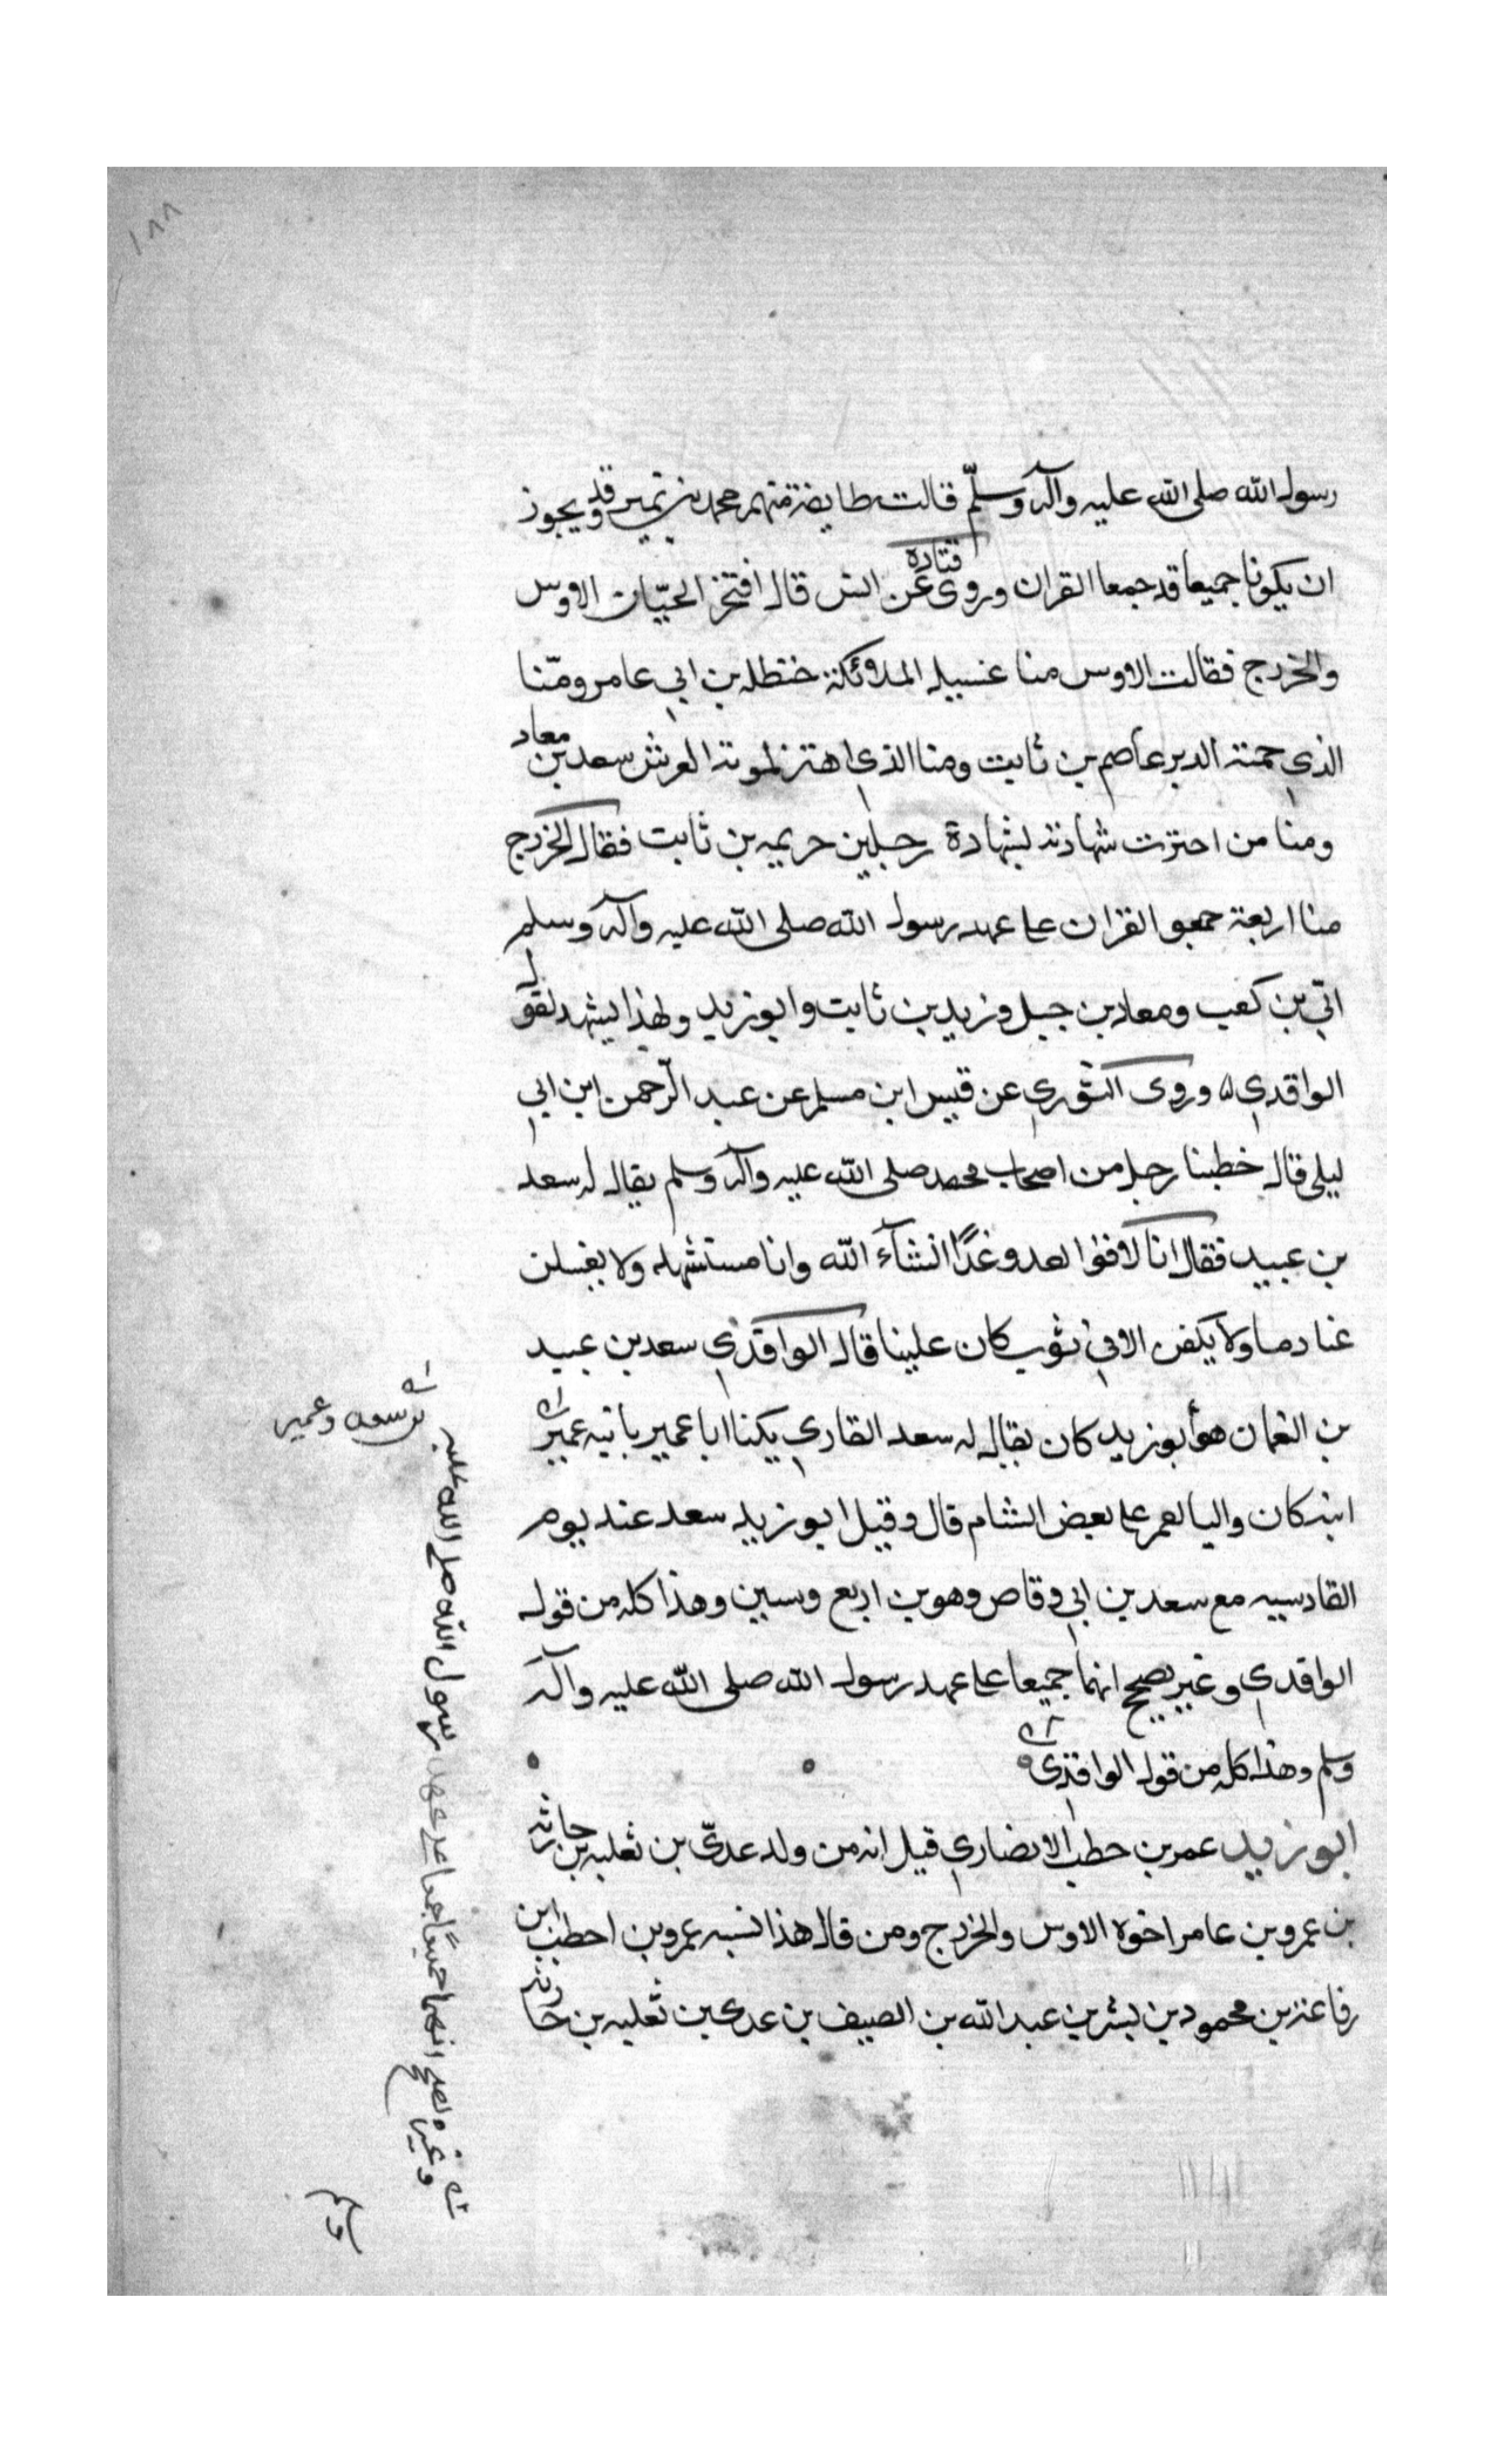 ١٨٨
رسول الله صلى الله عليه وآله وسلّم قالت طايفة منهم محمد بن نمير وقد يجوز
ان يكونا جميعا قد جمعا القران وروى قتادة عن انس قال افتخر الحيّان الاوس
والخزرج فقالت الاوس منا غسيل الملائكة حنظله بن ابي عامر ومنّا
الذي حمته الدبر عاصم بن ثابت ومنا الذي اهتز لموته العرش سعد بن معاد
ومنا من اجزت شهادته بشهادة رجلين خزيمه بن ثابت فقال الخزرج
منا اربعة جمعو القران على عهد رسول الله صلى الله عليه وآله وسلم
ابيّ بن كعب ومعاد بن جبل وزيد بن ثابت وابو زيد ولهذا يشهد لقول
الواقدي ٥ وروى الثوري عن قيس ابن مسلم عن عبد الرّحمن ابن ابي
ليلى قال خطبنا رجل من اصحاب محمد صلى الله عليه وآله وسلم يقال له سعد
بن عبيد فقال انا لاقوا العدو غدًا انشآء الله وانا مستشهد ولا يغسلن
عنا دما ولا يكفن الا في ثوب كان علينا قال الواقدي سعد بن عبيد
بن النعمان هو أبو زيد كان يقال له سعد القاري يكنا ابا عمير بابنه عمير
ابنه كان واليا لعمر على بعض الشام قال وقيل ابو زيد سعد عند يوم
القادسيه مع سعد بن ابي وقاص وهو بن اربع وسين وهذا كله من قول
الواقدي وغير يصحح انهما جميعا على عهد رسول الله صلى الله عليه وآله
وسلم وهذا كله من قول الواقدي
ابو زيد عمر بن حطب الانصاري قيل انه من ولد عديّ بن ثعلبه بن حارثه
بن عمرو بن عامر اخوه الاوس والخزرج ومن قال هذا نسبه عمرو بن احطب ابن
رفاعة بن محمود بن بشر بن عبد الله بن الصيف بن عدي بن ثعلبه بن حارثه
بن سعد وعمير
وغيره يصحح انهما جميعًا جمعا على عهد رسول الله صلى الله عليه
وسلم